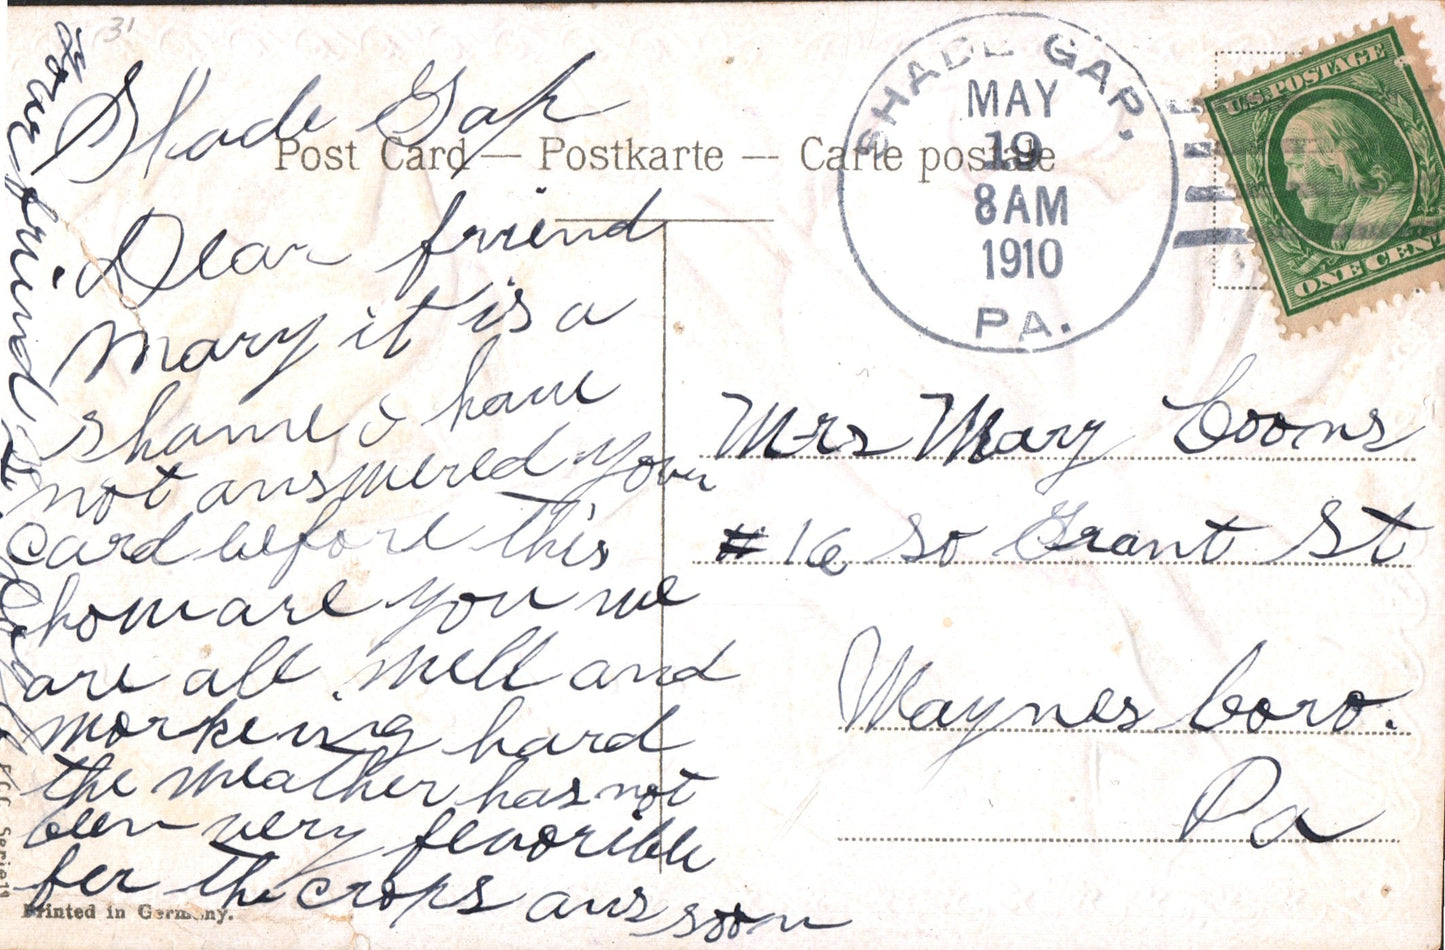 31
Shade Gap
Post Card — Postkarte — Carte postale
Dear friend
Mary it is a
shame i have
not answered your
card before this
how are you we
are all well and
working hard
the weather has not
been very fevorible
fer the crops ans soon
your friend
SHADE GAP,
MAY
19
8 AM
1910
PA.
U.S. POSTAGE
ONE CENT
Mrs Mary Coons
# 16 So Grant St
Waynesboro.
Pa
E.C.C. Serie 11
Printed in Germany.